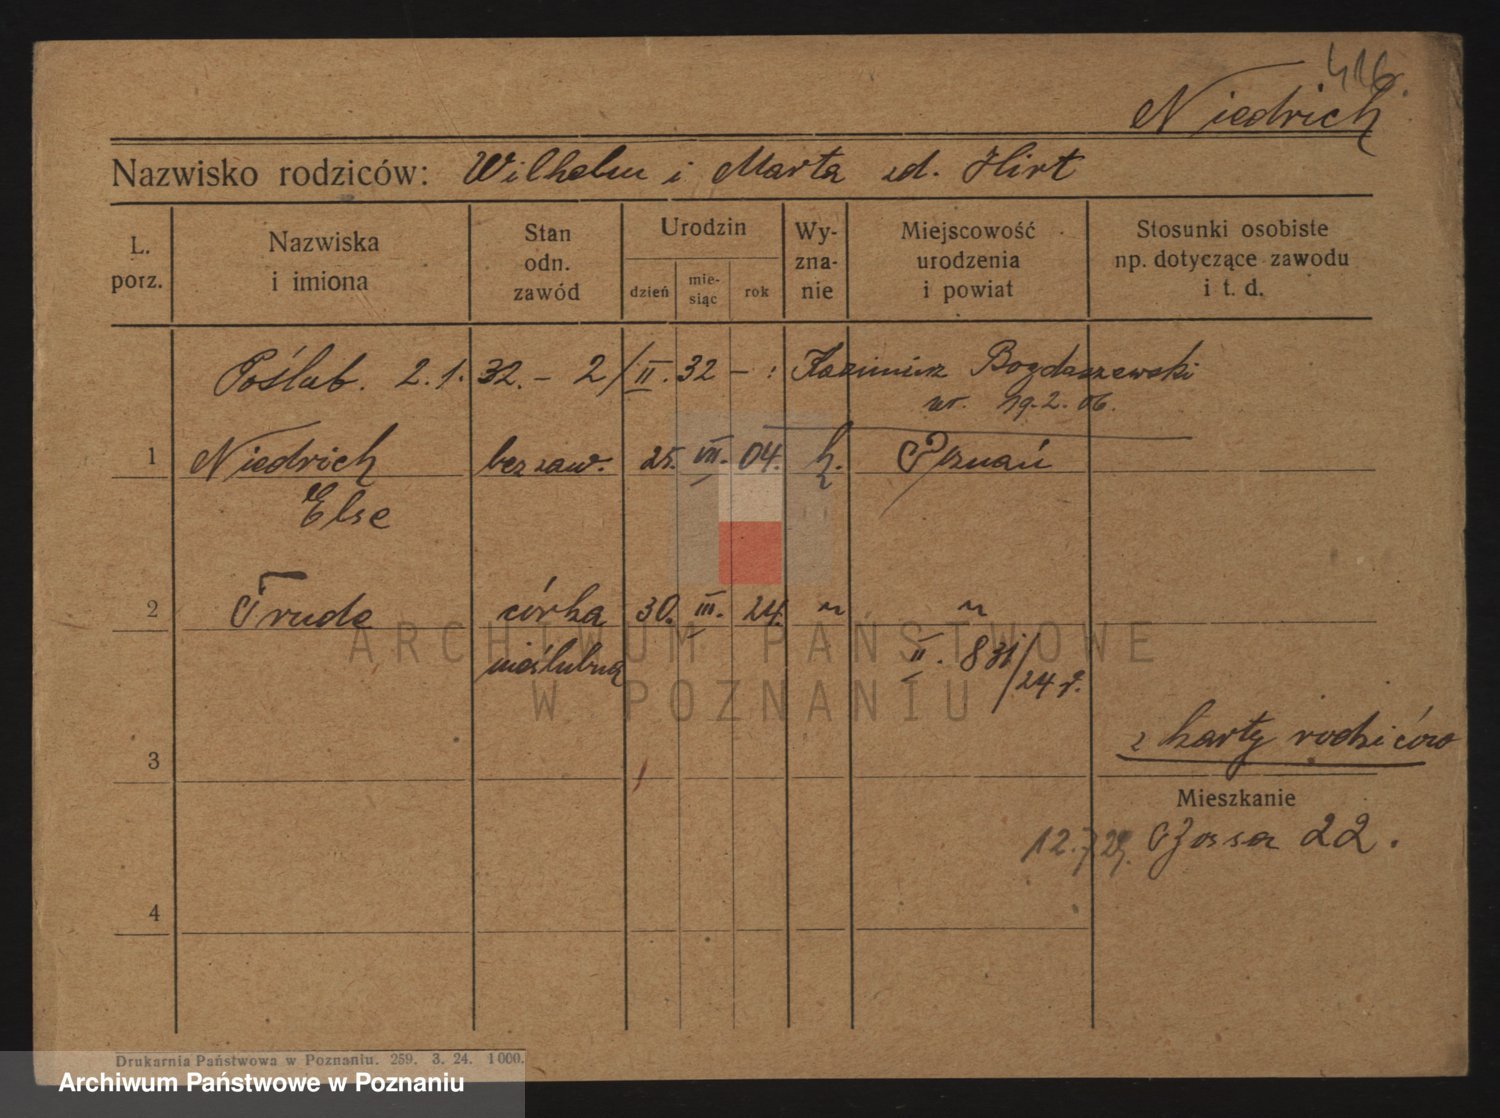 416.
Niedrich
Nazwisko rodziców: Wilhelm i Marta zd. Hirt
L. porz.
Nazwiska i imiona
Stan odn. zawód
Urodzin
dzień
mie- siąc
rok
Wy- zna- nie
Miejscowość urodzenia i powiat
Stosunki osobiste np. dotyczące zawodu i t. d.
Poślub. 2.1.32. - 2/II.32 - : Kazimierz Bogdaszewski
ur. 19.2.06.
1 Niedrich bez zaw. 25. VII. 04. k. Poznań
Else
2 Trude córka 30. III. 24. " "
nieślubna II. 831/24 r.
3
z karty rodziców
Mieszkanie
12.7.29. Rossa 22.
4
Drukarnia Państwowa w Poznaniu. 259. 3. 24. 1 000.
ARCHIWUM PAŃSTWOWE
W POZNANIU
Archiwum Państwowe w Poznaniu